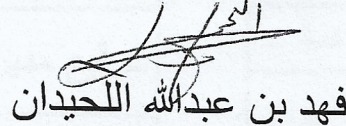 فهد بن عبدالله اللحيدان